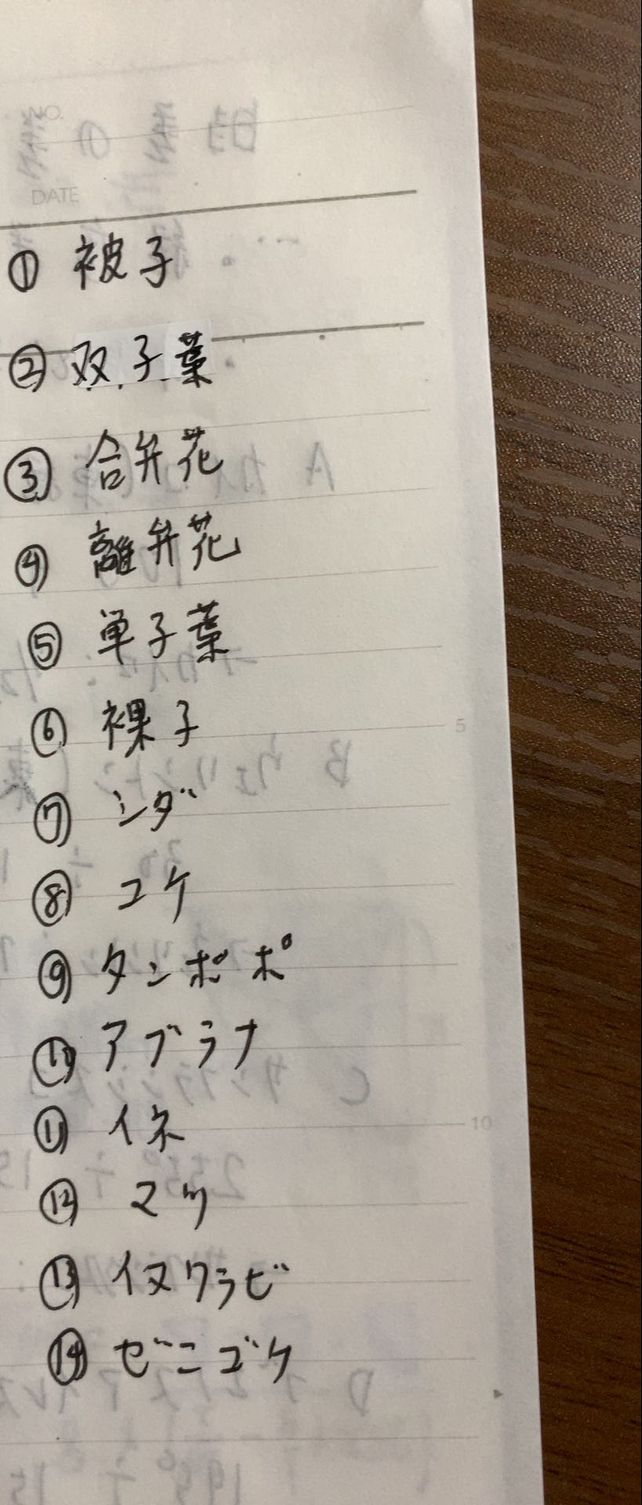 NO.
DATE
① 被子
② 双子葉
③ 合弁花
④ 離弁花
⑤ 単子葉
⑥ 裸子
⑦ シダ
⑧ コケ
⑨ タンポポ
⑩ アブラナ
⑪ イネ
⑫ マツ
⑬ イヌワラビ
⑭ ゼニゴケ
5
10